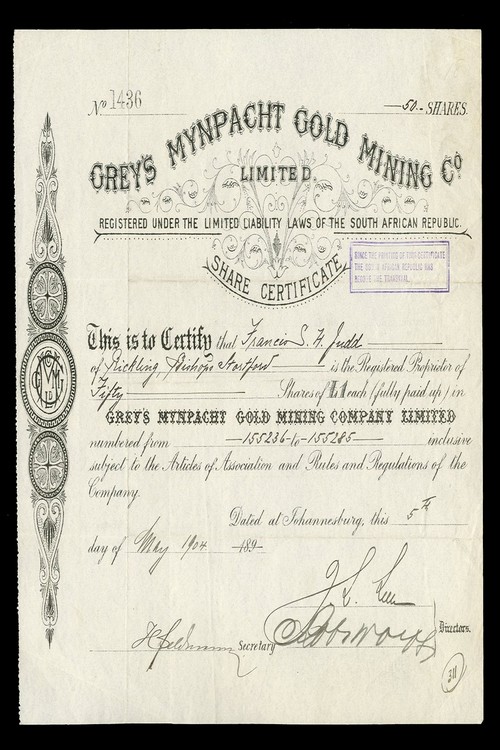 No 1436 —50.- SHARES.
GREY'S MYNPACHT GOLD MINING Co
LIMITED.
REGISTERED UNDER THE LIMITED LIABILITY LAWS OF THE SOUTH AFRICAN REPUBLIC.
SHARE CERTIFICATE
SINCE THE PRINTING OF THIS CERTIFICATE
THE SOUTH AFRICAN REPUBLIC HAS
BECOME THE TRANSVAAL.
This is to Certify that Francis S. H. Judd
of Rickling, Bishops Stortford is the Registered Proprietor of
Fifty Shares of £1 each (fully paid up) in
GREY'S MYNPACHT GOLD MINING COMPANY LIMITED
numbered from —155236-to-155285— inclusive
subject to the Articles of Association and Rules and Regulations of the
Company.
Dated at Johannesburg, this 5th
day of May 1904 189
Secretary
Directors.
311